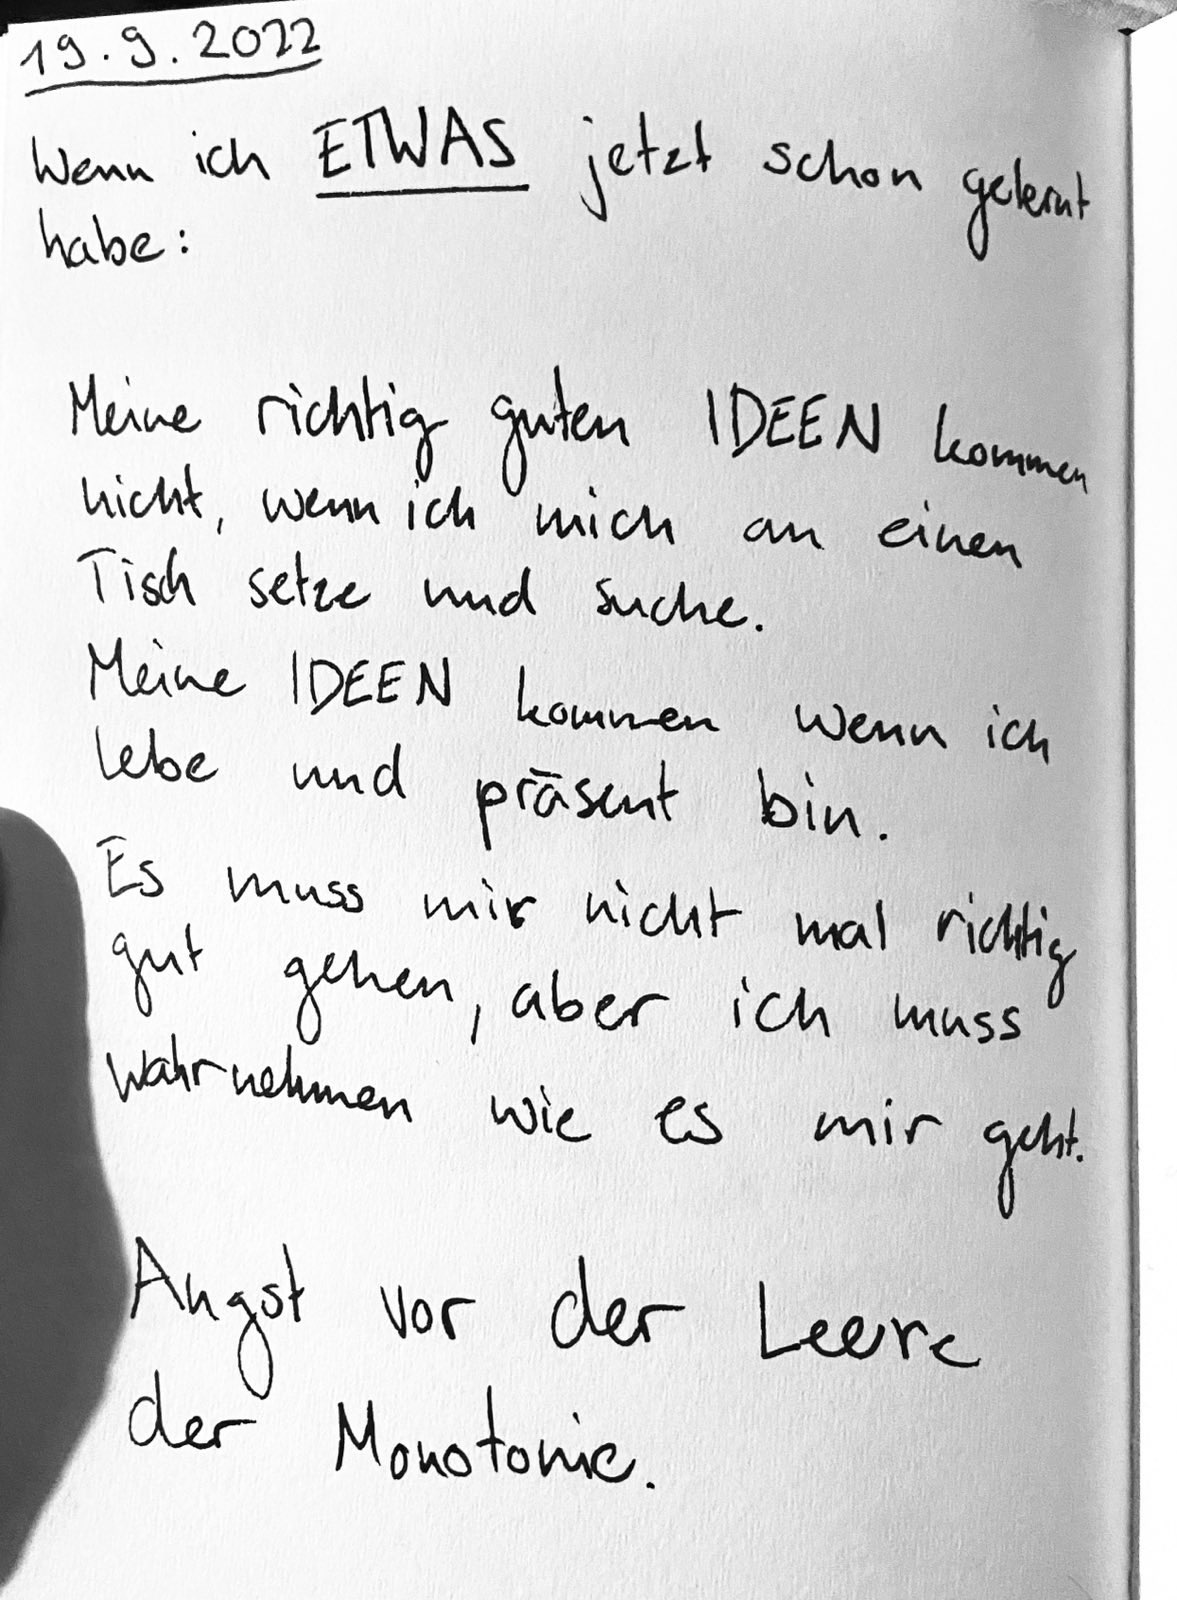 19.9.2022
Wenn ich ETWAS jetzt schon gelernt
habe:
Meine richtig guten IDEEN kommen
nicht, wenn ich mich an einen
Tisch setze und suche.
Meine IDEEN kommen wenn ich
lebe und präsent bin.
Es muss mir nicht mal richtig
gut gehen, aber ich muss
wahrnehmen wie es mir geht.
Angst vor der Leere
der Monotonie.